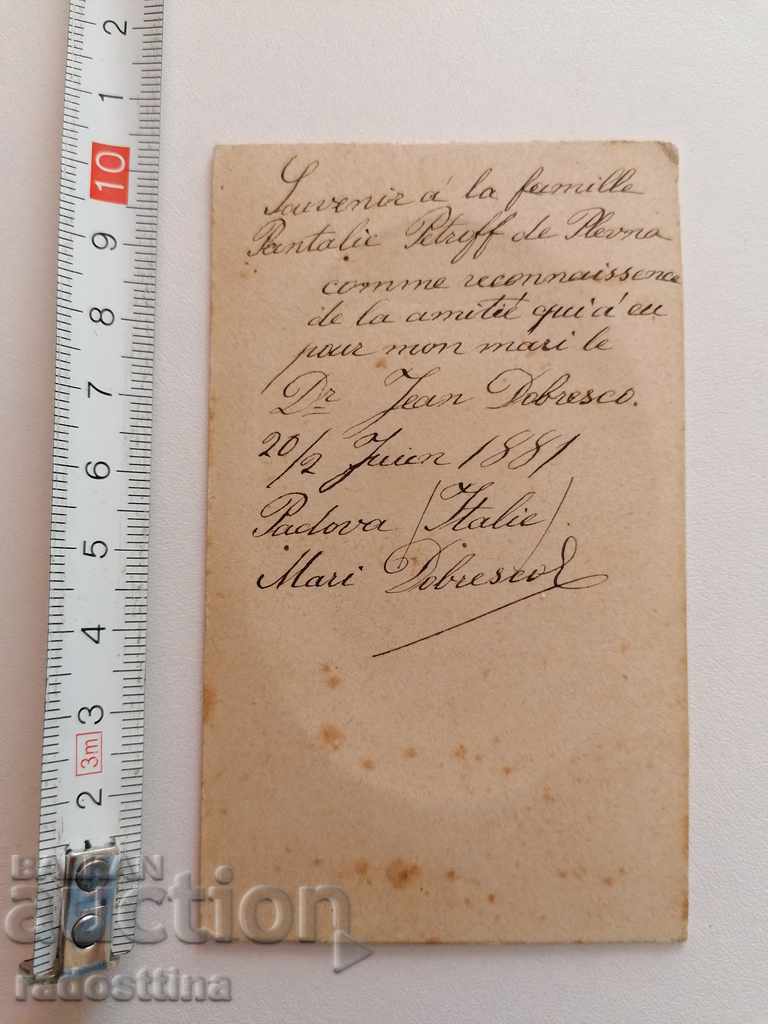 Souvenir à la famille
Pantalie Petroff de Plevna
comme reconnaissence
de la amitié qui à eu
pour mon mari le
Dr Jean Dobresco.
20/2 Juin 1881
Padova (Italie).
Mari Dobresco
2
1
10
9
8
7
6
5
4
3
3m
2
BALKAN
auction
radosttina